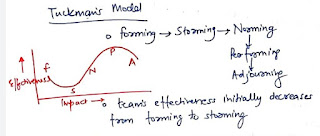 Tuckman's Model
o forming → Storming → Norming
Performing
Adjourning
Effectiveness
F
S
N
P
A
Impact → o team's effectiveness initially decreases
from forming to storming